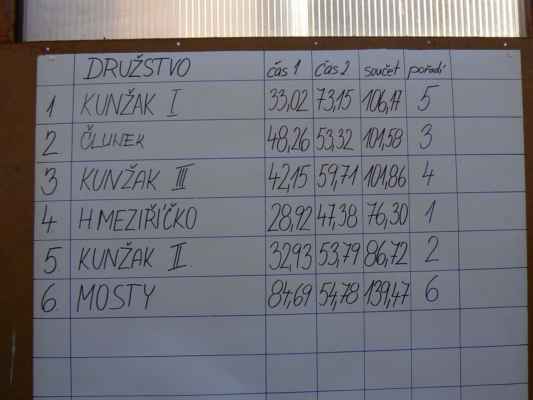 DRUŽSTVO čas 1 čas 2 součet pořadí
1 KUNŽAK I 33,02 73,15 106,17 5
2 ČLUNEK 48,26 53,32 101,58 3
3 KUNŽAK III 42,15 59,71 101,86 4
4 H.MEZIŘÍČKO 28,92 47,38 76,30 1
5 KUNŽAK II 32,93 53,79 86,72 2
6 MOSTY 84,69 54,78 139,47 6